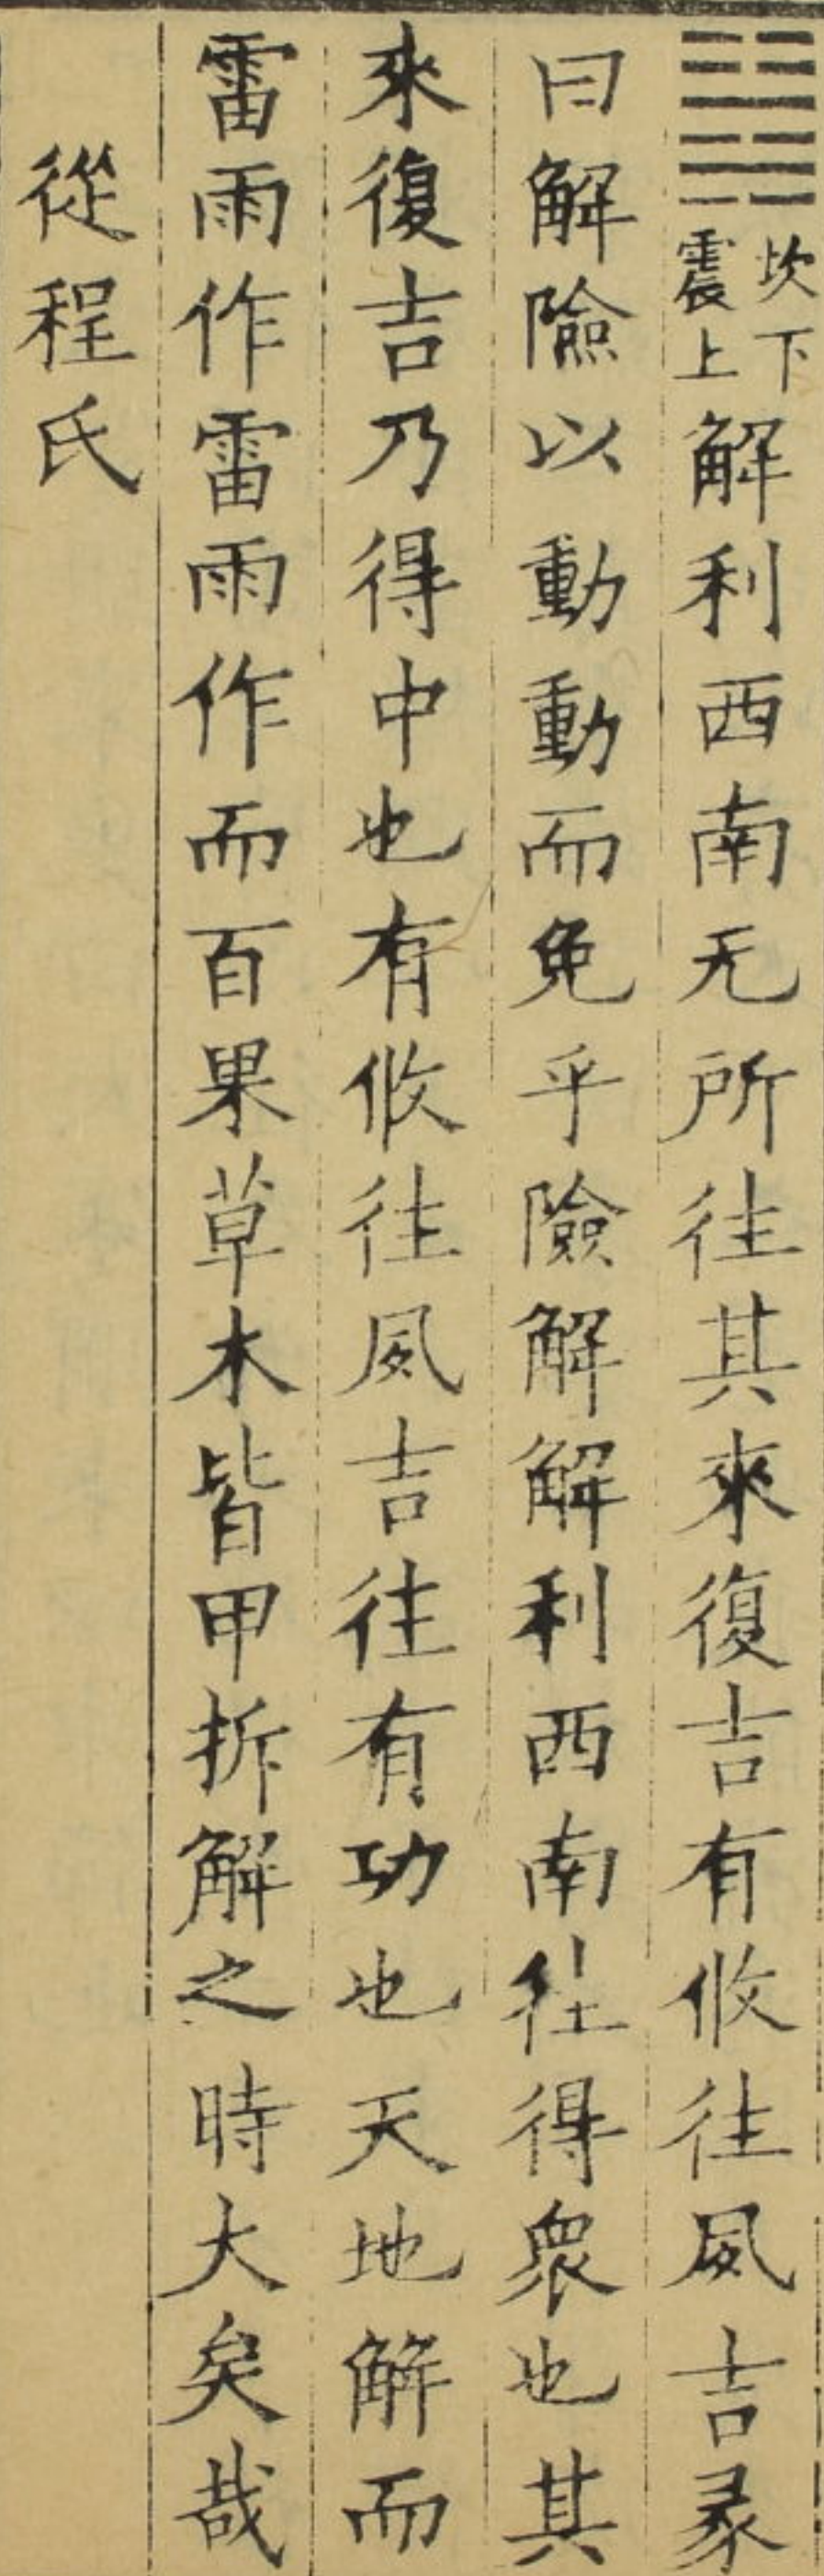 ䷧坎下震上解利西南无所往其來復吉有攸往夙吉彖
曰解險以動動而免乎險解解利西南往得衆也其
來復吉乃得中也有攸往夙吉往有功也天地解而
雷雨作雷雨作而百果草木皆甲拆解之時大矣哉
從程氏